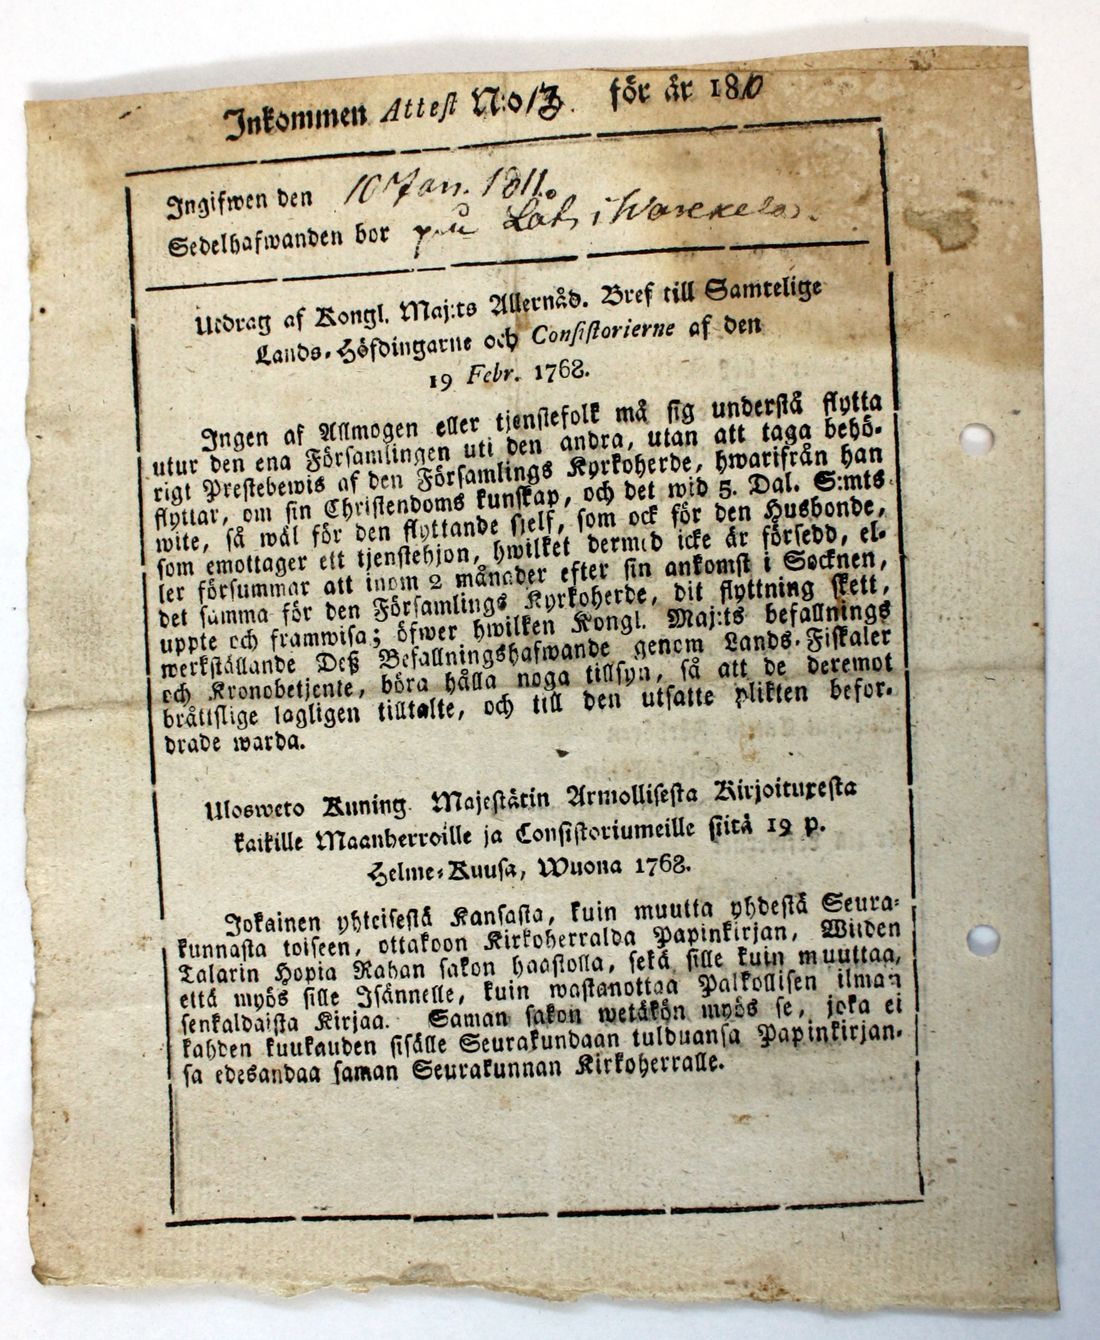 Inkommen Attest N:o 13. för år 1810
Ingifwen den 10 Jan. 1811.
Sedelhafwanden bor på i
Utdrag af Kongl. Maj:ts Allernåd. Bref till Samtelige
Lands-Höfdingarne och Consistorierne af den
19 Febr. 1768.
Ingen af Allmogen eller tjenstefolk må sig understå flytta
utur den ena Församlingen uti den andra, utan att taga behö-
rigt Prestebewis af den Församlings Kyrkoherde, hwarifrån han
flyttar, om sin Christendoms kunskap, och det wid 5. Dal. S:mts
wite, så wäl för den flyttande sjelf, som ock för den Husbonde,
som emottager ett tjenstehjon, hwilket dermed icke är försedd, el-
ler försummar att inom 2 månader efter sin ankomst i Socknen,
det samma för den Församlings Kyrkoherde, dit flyttning skett,
uppte och framwisa; öfwer hwilken Kongl. Maj:ts befallnings
werkställande Deß Befallningshafwande genom Lands-Fiskaler
och Kronobetjente, böra hålla noga tillsyn, så att de deremot
bråttslige lagligen tilltalte, och till den utsatte plikten befor-
drade warda.
Ulosweto Kuning. Majestätin Armollisesta Kirjoituxesta
kaikille Maanherroille ja Consistoriumeille siitä 19 p.
Helme-Kuusa, Wuona 1768.
Jokainen yhteisestä Kansasta, kuin muutta yhdestä Seura-
kunnasta toiseen, ottakoon Kirkoherralda Papinkirjan, Wiiden
Talarin Hopia Rahan sakon haastolla, sekä sille kuin muuttaa,
että myös sille Isännelle, kuin wastanottaa Palkollisen ilman
senkaldaista Kirjaa. Saman sakon wetäkön myös se, joka ei
kahden kuukauden sisälle Seurakundaan tulduansa Papinkirjan-
sa edesandaa saman Seurakunnan Kirkoherralle.